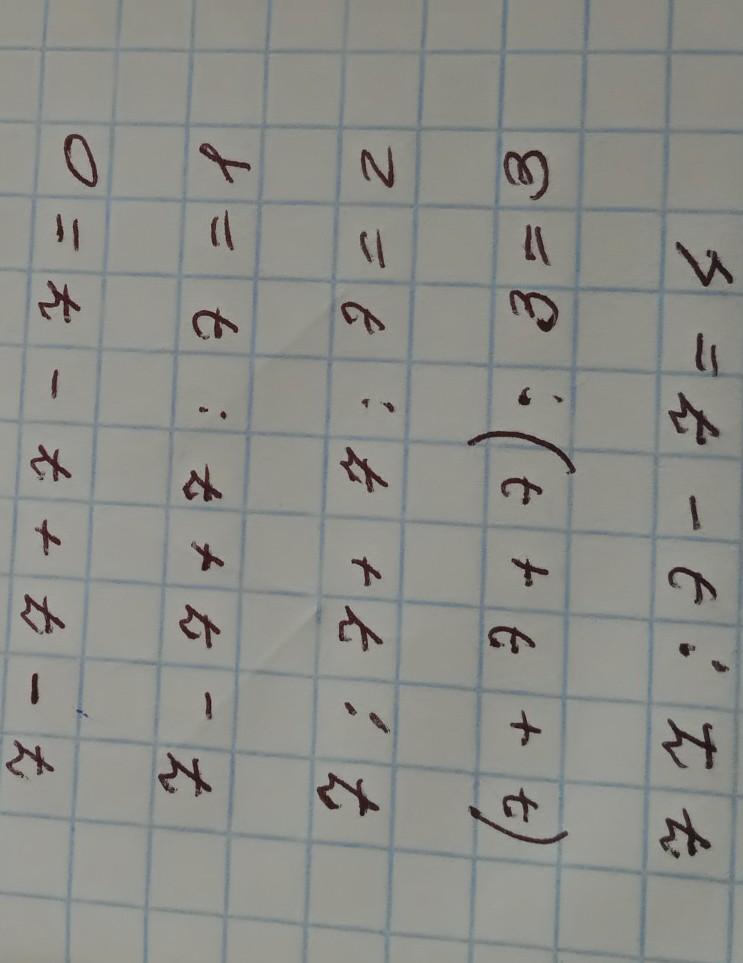 4 - 4 + 4 - 4 = 0
4 - 4 + 4 : 4 = 1
4 : 4 + 4 : 4 = 2
(4 + 4 + 4) : 4 = 3
44 : 4 - 4 = 7